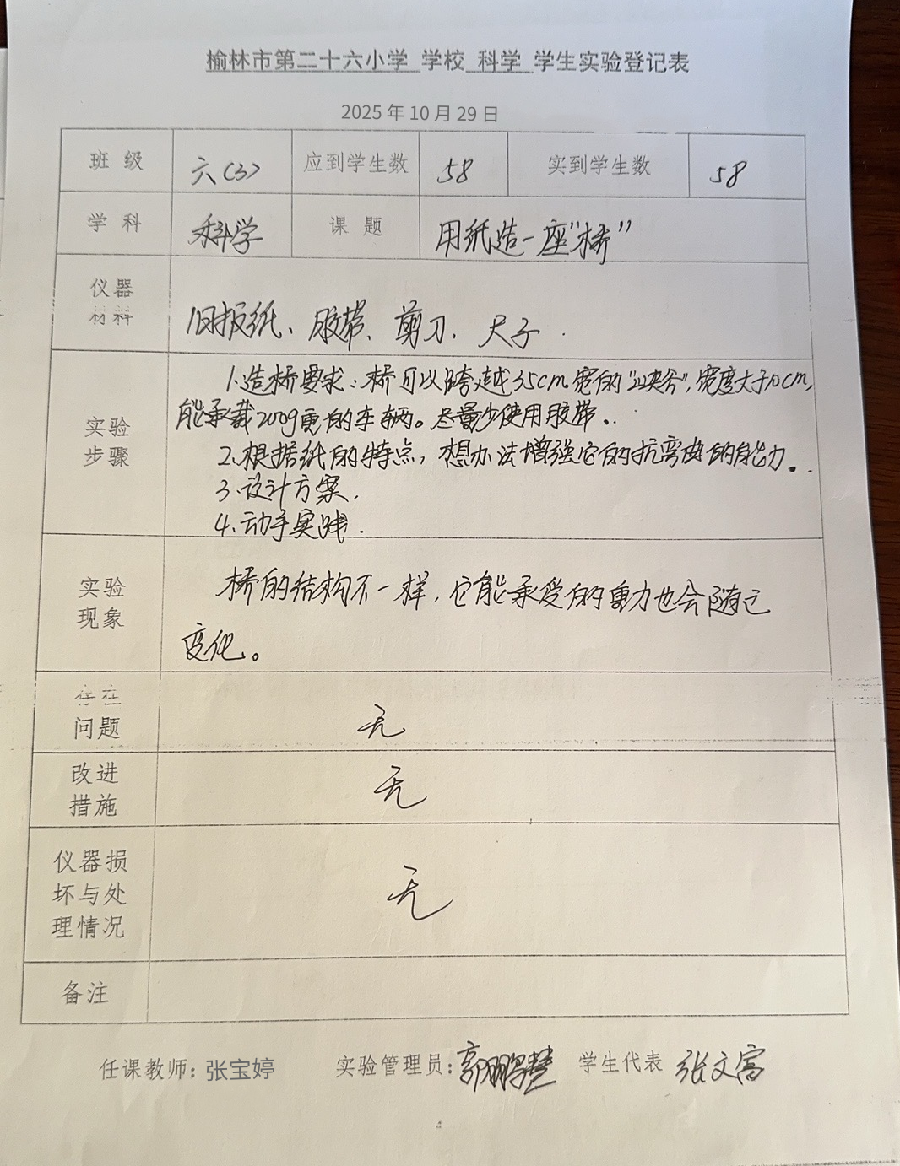 榆林市第二十六小学 学校 科学 学生实验登记表
2025年10月29日
班 级 六(3) 应到学生数 58 实到学生数 58
学 科 科学 课 题 用纸造一座"桥"
仪器
材料
旧报纸、胶带、剪刀、尺子.
实验
步骤
1.造桥要求:桥可以跨越35cm宽的"山峡谷",宽度大于10cm,
能承载200g重的车辆。尽量少使用胶带。
2.根据纸的特点,想办法增强它的抗弯曲的能力。
3.设计方案.
4.动手实践.
实验
现象
桥的结构不一样,它能承受的重力也会随之
变化。
存在
问题
无
改进
措施
无
仪器损
坏与处
理情况
无
备注
任课教师:张宝婷 实验管理员:郭鹏 学生代表 张文富